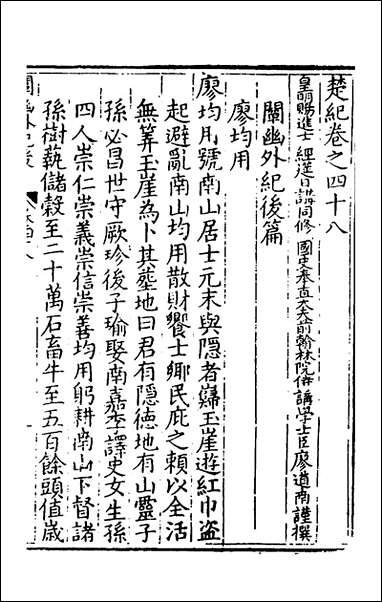 楚紀卷之四十八
皇明賜進士 經筵日講同修 國史奉直大夫前翰林院侍講學士臣廖道南謹撰
闡幽外紀後篇
廖均用
廖均用號南山居士元末與隱者蘇玉崖遊紅巾盜
起避亂南山均用散財饗士鄉民庇之賴以全活
無筭玉崖為卜其塟地曰君有隱德地有山靈子
孫必昌世守厥珍後子瑜娶南嘉李譯史女生孫
四人崇仁崇義崇信崇善均用躬耕南山下督諸
孫樹藝儲穀至二十萬石畜牛至五百餘頭值歲